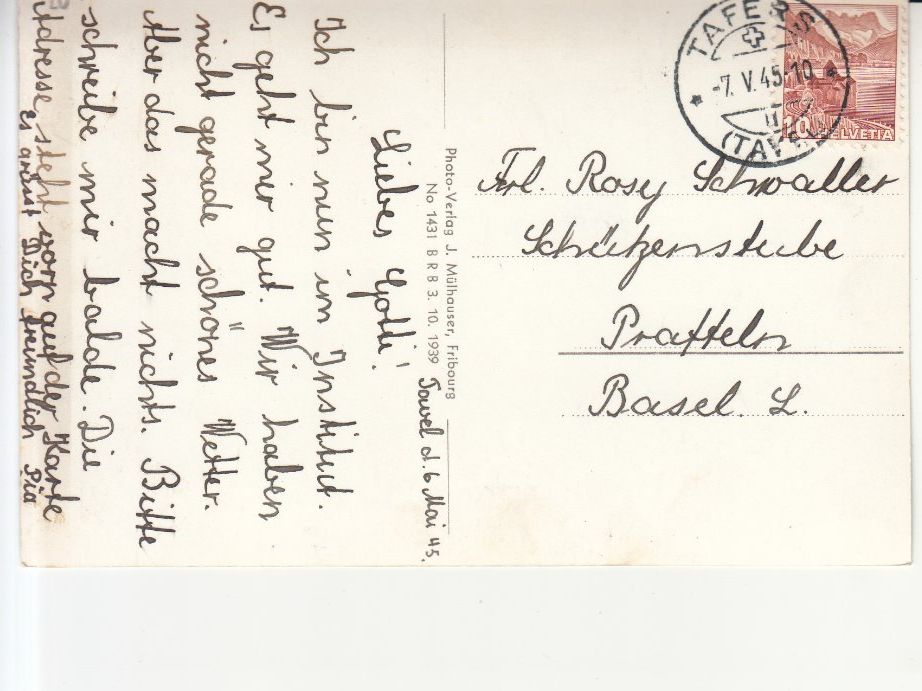 Tavel d. 6 Mai 45.
Liebes Gotti!
Ich bin nun im Institut.
Es geht mir gut. Wir haben
nicht gerade schönes Wetter.
Aber das macht nichts. Bitte
schreibe mir balde. Die
Adresse steht vorn auf der Karte
Es grüsst Dich freundlich Pia
Photo-Verlag J. Mülhauser, Fribourg
No 1431 B R B 3. 10. 1939
TAFERS
-7. V. 45-10
(TAVEL)
10 HELVETIA
Frl. Rosy Schwaller
Schützenstube
Pratteln
Basel. L.